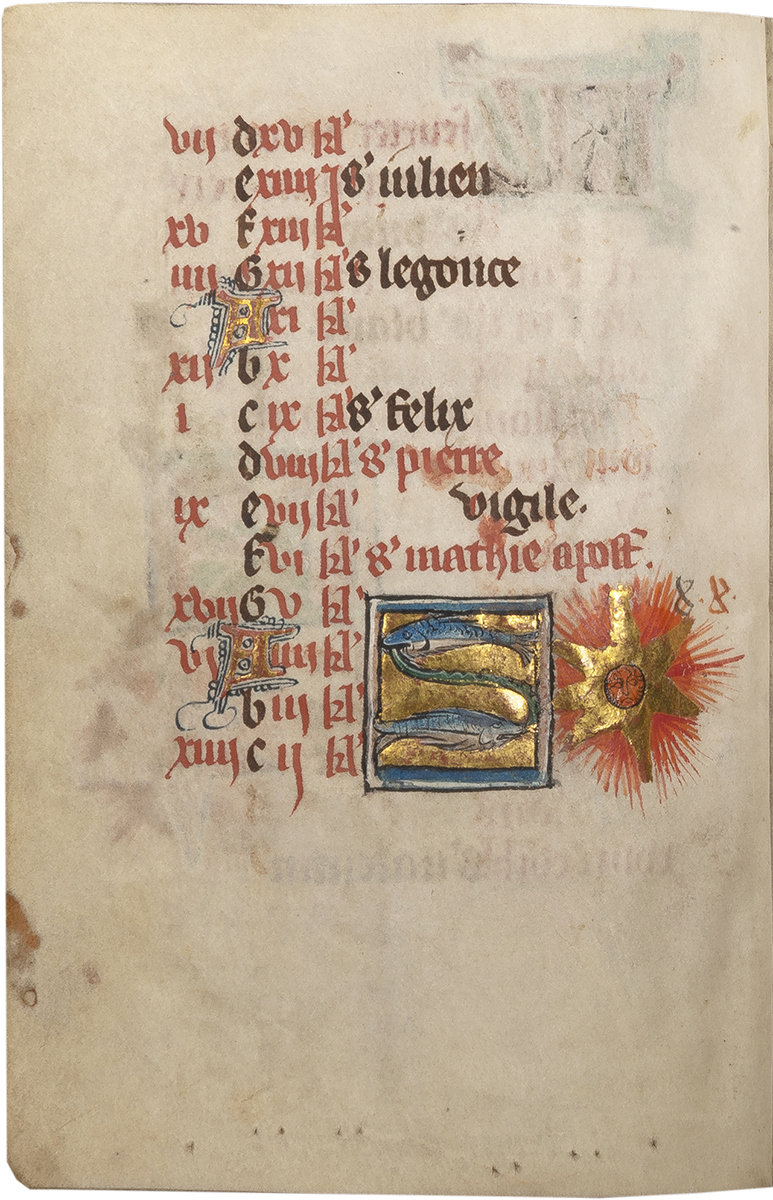 vij d xv kl'
e xiiij l s' iulien
xv f xiij kl'
iiij G xij kl' s legonce
A xi kl'
xij b x kl'
i c ix kl' s' felix
d viij kl' s' pierre
ix e vij kl' vigile.
f vi kl' s' mathie apost'.
xvij G v kl'
vj A iiij kl'
b iij kl'
xiiij c ij kl'